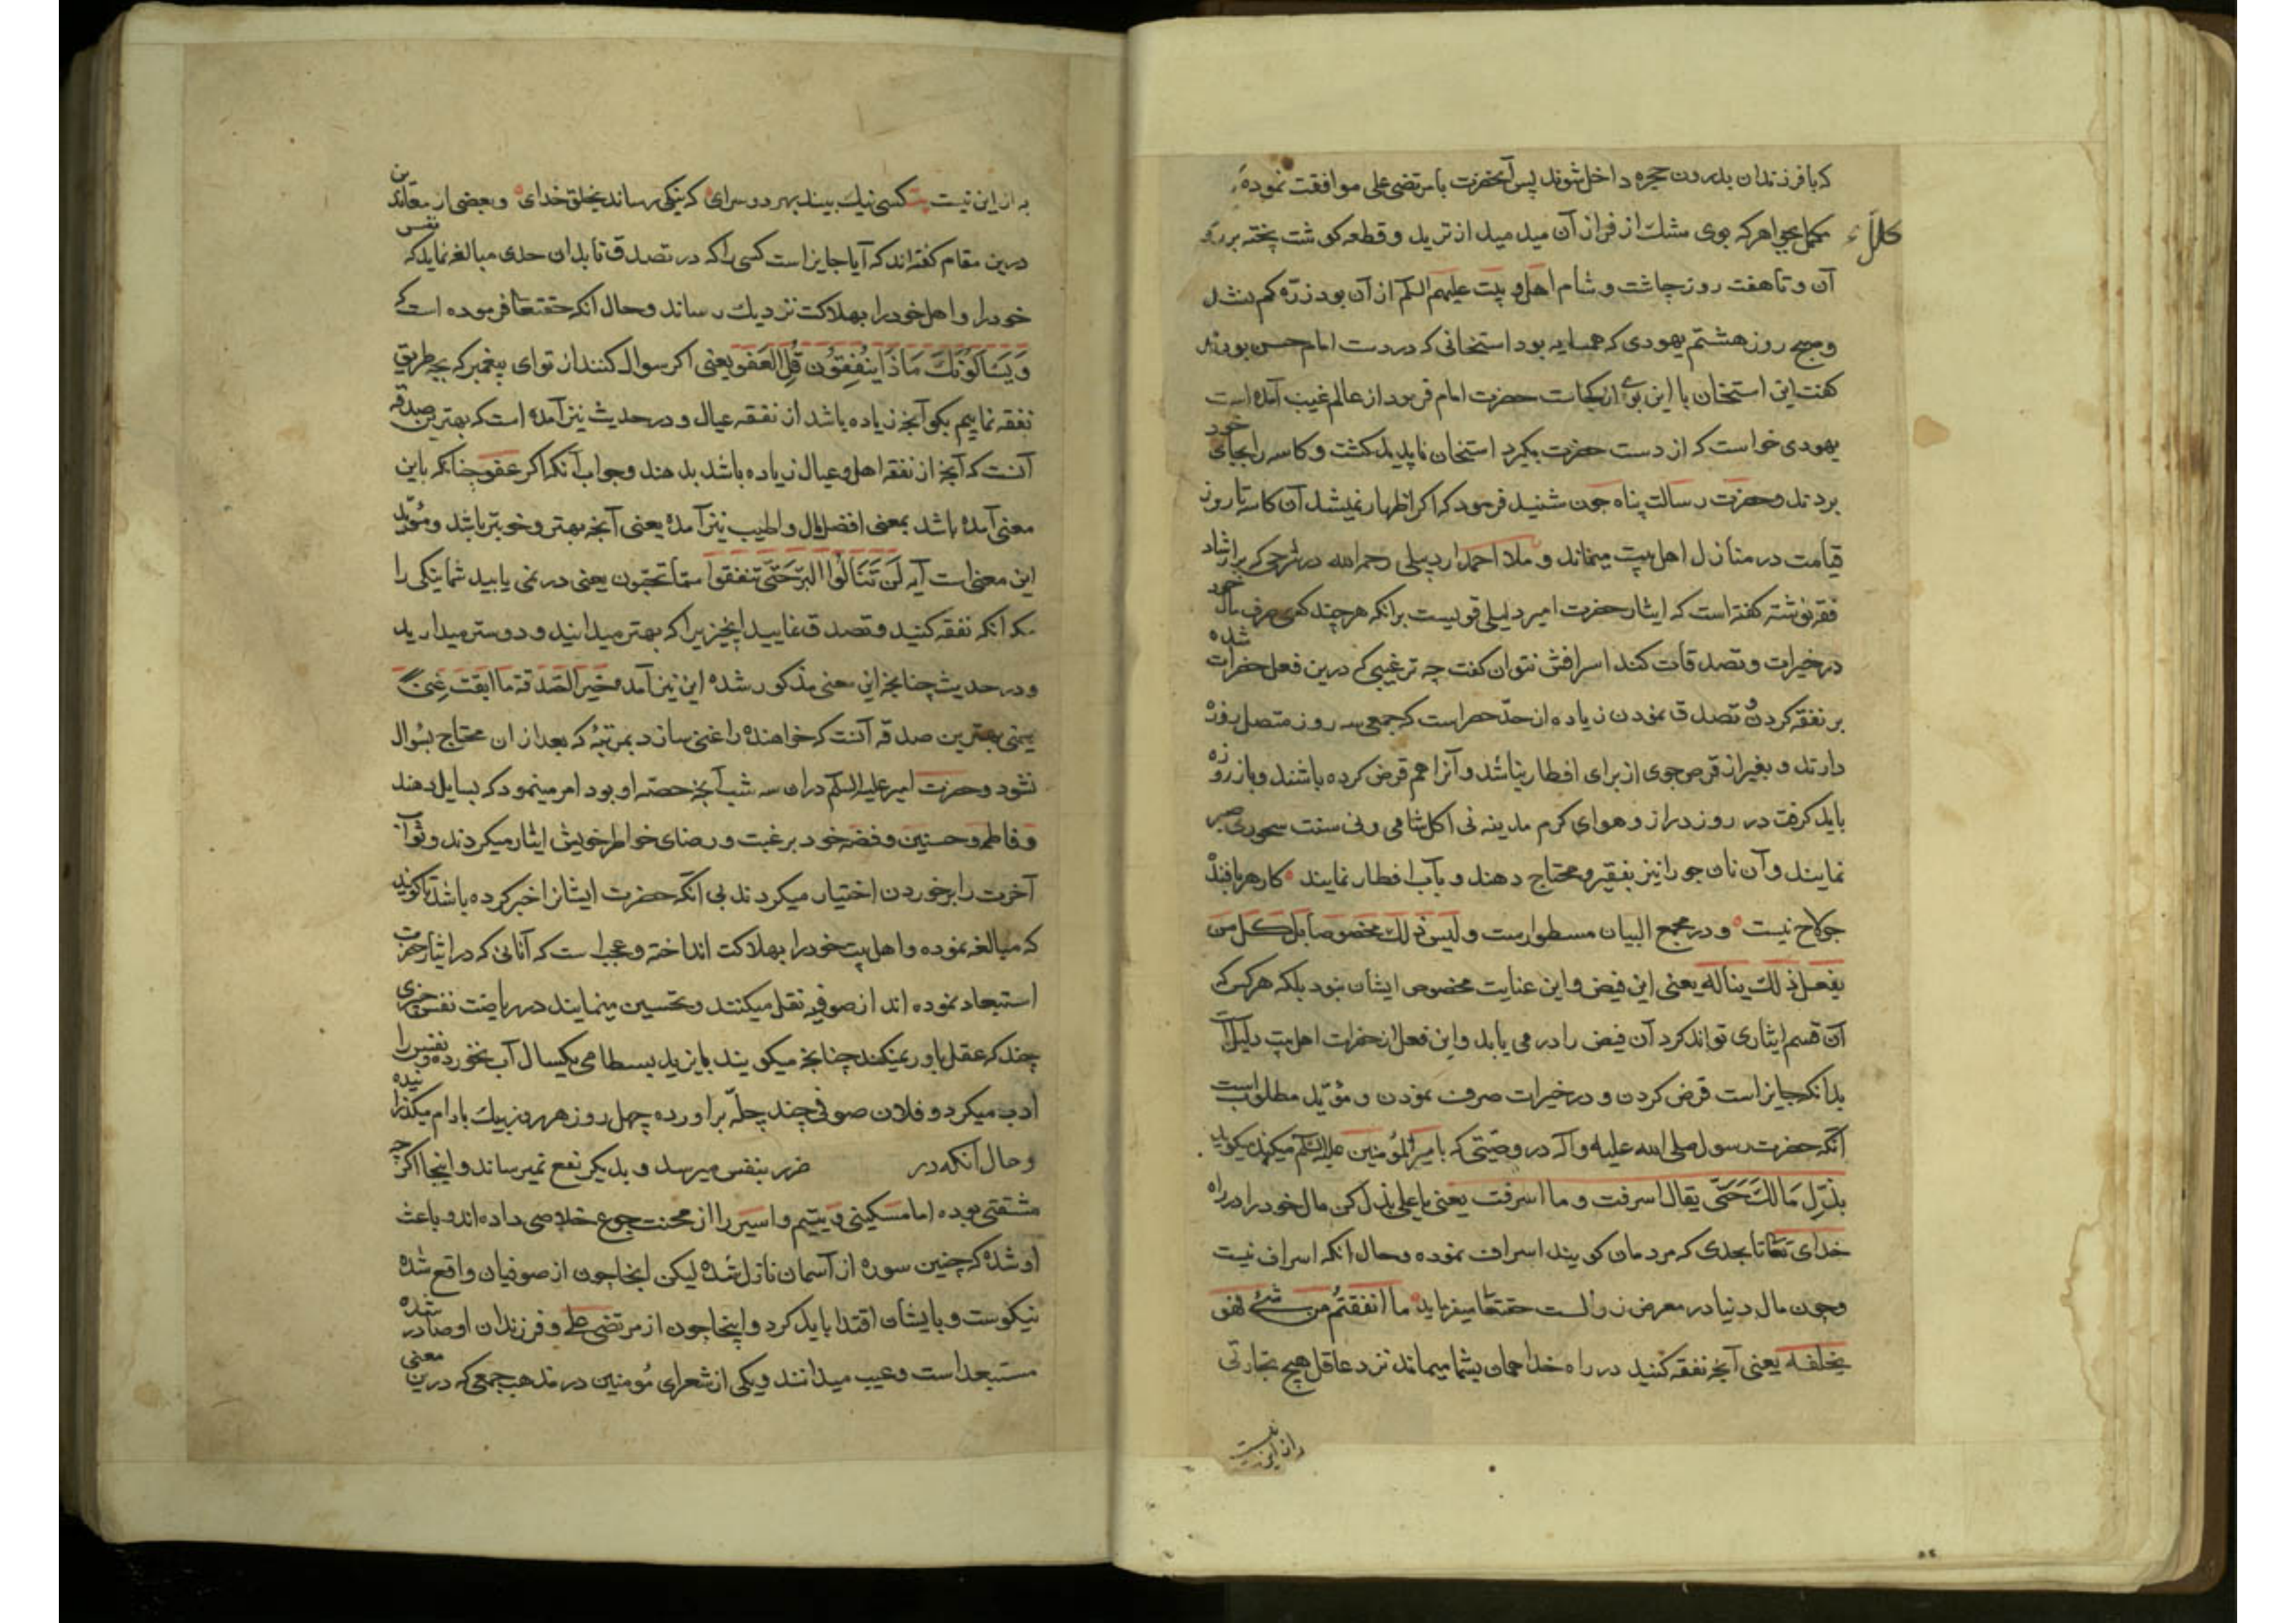 که با فرزندان بدرون حجره داخل شوند پس آنحضرت با مرتضی علی موافقت نموده
مکمل بجواهر که بوی مشک از فراز آن میدمید از ترید و قطعه کوشت پخته بر
آن و تا هفت روز چاشت و شام اهل بیت علیهم السلم از آن بود ذرّه کم نشد
و صبح روز هشتم یهودی که همسایه بود استخانی که در دست امام حسن بود
کفت این استخان با این بوی از کجاست حضرت امام فرمود از عالم غیب آمده است
یهودی خواست که از دست حضرت بکیرد استخان ناپدید کشت و کاسه را بجای خود
بردند و حضرت رسالت پناه چون شنید فرمود که اکر اظهار نمیشد آن کاسه تا روز
قیامت در منازل اهل بیت میماند و ملا احمد اردبیلی رحمه الله در شرحی که بر ارشاد
فقه نوشته کفته است که ایثار حضرت امیر دلیلی قویست برانکه هر چند کسی صرف مال خود
در خیرات و تصدقات کند اسرافش نتوان کفت چه ترغیبی که درین فعل حضرات شده
بر نفقه کردن و تصدق نمودن زیاده از حدّ حصر است که جمعی سه روز متصل روزه
دارند و بغیر از قرص جوی از برای افطار نباشد و آنرا هم قرض کرده باشند و باز روزه
باید کرفت در روز دراز و هوای کرم مدینه نی اکل شامی و نی سنت سحوری صبر
نمایند و آن نان جو را نیز بفقیر و محتاج دهند و بآب افطار نمایند کار هر بافنده
جولاح نیست و در مجمع البیان مسطوراست و لیس ذلك مخصوصا بل کل من
یفعل ذلك یناله یعنی این فیض و این عنایت مخصوص ایشان نبود بلکه هر کس که
آن قسم ایثاری تواند کرد آن فیض را در می یابد و این فعل از حضرات اهل بیت دلیل است
بدانکه جایز است قرض کردن و در خیرات صرف نمودن و مؤیّد مطلوب است
آنکه حضرت رسول صلی الله علیه و آله در وصیّتی که بامیرالمؤمنین علیه السلم میکند میکوید
بذّل مالك حتّی یقال اسرفت و ما اسرفت یعنی یا علی بذل کن مال خود را در راه
خدای تعا تا بحدی که مردمان کویند اسراف نموده و حال انکه اسراف نیست
و چون مال دنیا در معرض زوالست حقتعا میفرماید ما انفقتم من شیء فهو
یخلفه یعنی آنچه نفقه کنید در راه خدا همان بشما میماند نزد عاقل هیچ تجارتی
به از این نیست بیت کسی نیك بیند بهر دو سرای که نیکی رساند بخلق خدای و بعضی از معاندین
درین مقام کفته اند که آیا جایز است کسی را که در تصدق تا بدان حدی مبالغه نماید که نفس
خود را و اهل خود را بهلاکت نزدیك رساند و حال آنکه حقتعا فرموده است که
وَیَسْألُونَكَ مَاذَا یُنْفِقُون قُلِ العَفو یعنی اکر سوال کنند از تو ای پیغمبر که بچه طریق
نفقه نماییم بکو آنچه زیاده باشد از نفقه عیال و در حدیث نیز آمده است که بهترین صدقه
آنست که آنچه از نفقه اهل و عیال زیاده باشد بدهند و جواب آنکه اکر عفو چنانکه باین
معنی آمده باشد بمعنی افضل مال و اطیب نیز آمده یعنی آنچه بهتر و خوبتر باشد و مؤیّد
این معنی است آیه لَن تَنَالُوا البرّ حَتّی تنفقوا ممّا تحبّون یعنی در نمی یابید شما نیکی را
مکه انکه نفقه کنید و تصدق نمایید از چیزی را که بهتر میدانید و دوستر میدارید
و در حدیث چنانچه این معنی مذکور شده این نیز آمده خیر الصّدقة ما ابقت غنیً
یعنی بهترین صدقه آنست که خواهنده را غنی سازد بمرتبهٔ که بعد از ان محتاج بسوال
نشود و حضرت امیر علیه السلم دران سه شب آنچه حصّه او بود امر مینمود که بسایل دهند
و فاطمه و حسنین و فضه خود برغبت و رضای خواطر خویش ایثار میکردند و ثواب
آخرت را بر خوردن اختیار میکردند بی آنکه حضرت ایشانرا خبر کرده باشد تا کویند
که مبالغه نموده و اهل بیت خود را بهلاکت انداخته و عجب است که آنانی که در ایثار حضرت
استبعاد نموده اند از صوفیه نقل میکنند و تحسین مینمایند در ریاضت نفس چیزی
چند که عقل باور نمیکند چنانچه میکویند بایزید بسطامی یکسال آب نخورده و نفس را
ادب میکرد و فلان صوفی چند چلّه براورده چهل روز هر روز بیك بادام میکذرانیده
و حال آنکه در ضرر بنفس میرسد و بدیکری نفع نمیرساند و اینجا اکر چه
مشقتی بوده اما مسکینی و یتیم و اسیر را از محنت جوع خلاصی داده اند و باعث
او شده که چنین سوره از آسمان نازل شده لیکن انجا چون از صوفیان واقع شده
نیکوست و بایشان اقتدا باید کرد و اینجا چون از مرتضی علی و فرزندان او صادر شده
مستبعد است و عیب میدانند و یکی از شعرای مؤمنین در مذهب جمعی که درین معنی